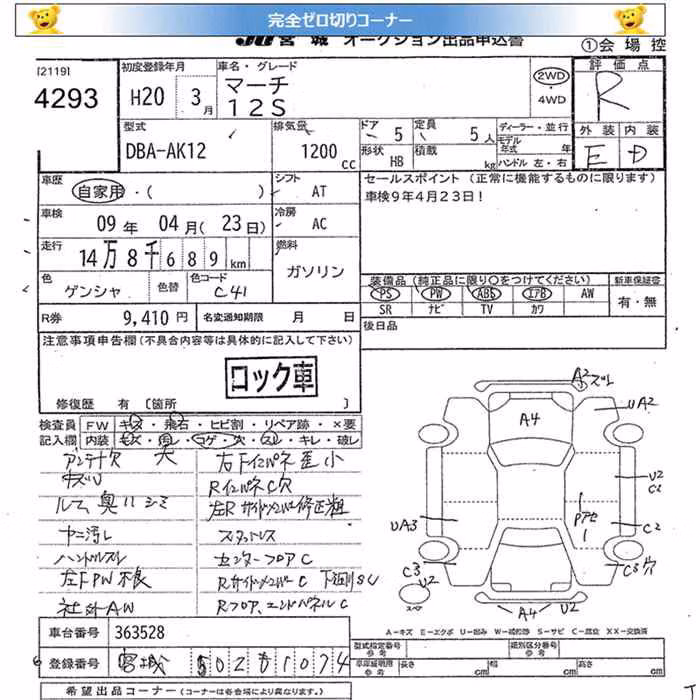 完全ゼロ切りコーナー
JU 宮城 オークション出品申込書
①会場控
[2119]
4293
初度登録年月
H20 3月
車名・グレード
マーチ
12S
2WD
・
4WD
評価点
R
外装 内装
E D
型式
DBA-AK12
排気量
1200cc
ドア 5
定員 5人
形状 HB
積載 kg
ディーラー・並行
モデル年式 年
ハンドル 左・右
車歴
自家用・( )
シフト
AT
車検
09年 04月(23日)
冷房
AC
走行
14万8千689km
燃料
ガソリン
色
ゲンシャ
色替
色コード
C41
R券 9,410円
名変通知期限 月 日
セールスポイント (正常に機能するものに限ります)
車検9年4月23日!
装備品 (純正品に限り○をつけてください)
PS PW ABS エアB AW
SR ナビ TV カワ
新車保証書
有・無
後日品
注意事項申告欄(不具合内容等は具体的に記入して下さい)
ロック車
修復歴 有 〔箇所 〕
検査員記入欄
FW キズ・飛石・ヒビ割・リペア跡・×要
内装 キズ・汚レ・コゲ・穴・スレ・キレ・破レ
アンテナ欠
キズU
ルーム奥ハシミ
ヤニ汚レ
ハンドルスレ
左FPW不良
社外AW
右下インパネ歪小
RインパネC穴
左Rサイドメンバー修正粗
スタットレス
センターフロアC
RサイドメンバーC 下廻りSC
Rフロア、エンドパネルC
A2ズレ
A4
UA2
U2
C2
Pアセ
1
UA3
C2
C3
U2
C3穴
スペア
A4
U2
A−キズ E−エクボ U−凹み W−補修跡 S−サビ C−腐食 XX−交換済
車台番号 363528
登録番号 宮城 502 も 1074
型式指定番号
参考
類別区分番号
参考
車庫証明用
参考
長さ cm
幅 cm
高さ cm
希望出品コーナー (コーナーは各会場により異なります。)